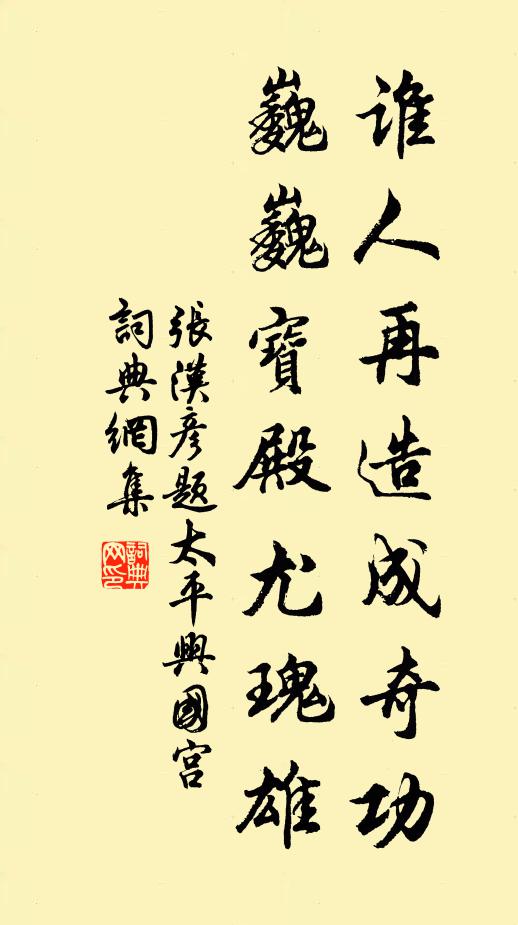 誰人再造成奇功
巍巍寶殿尤瑰雄
張漢彦題太平興國宮
詞典網集
詞典
网印